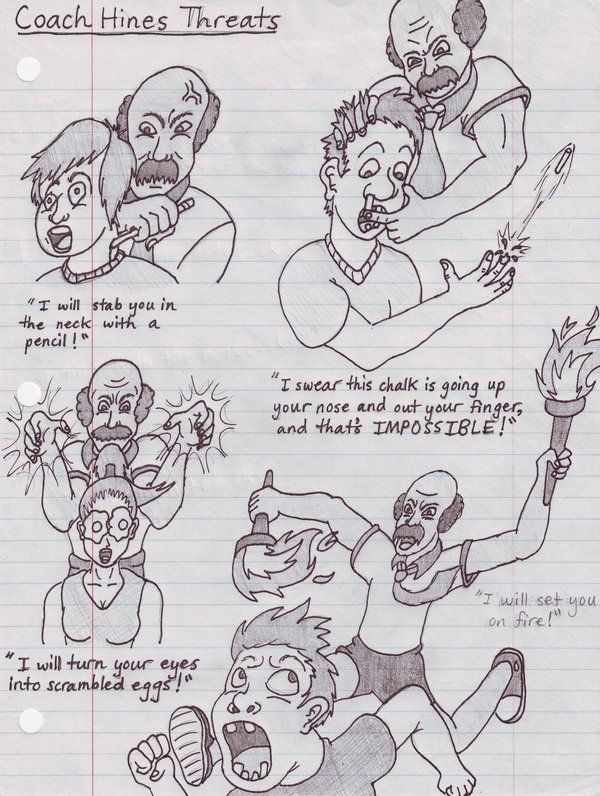 Coach Hines Threats
"I will stab you in
the neck with a
pencil!"
"I swear this chalk is going up
your nose and out your finger,
and that's IMPOSSIBLE!"
"I will turn your eyes
into scrambled eggs!"
"I will set you
on fire!"